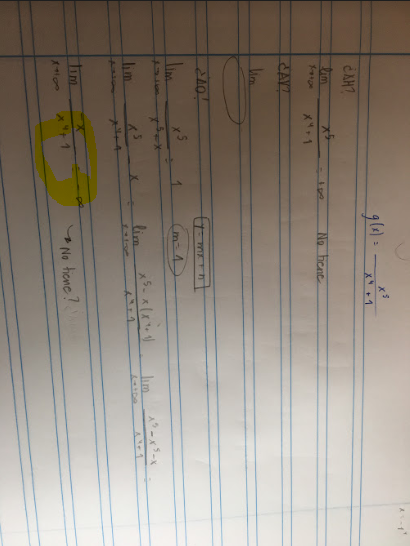 g(x) = x⁵ / x⁴ + 1
¿AH?
lim x→+∞ x⁵ / x⁴ + 1 = +∞ No tiene
¿AV?
lim
¿AO? y = mx + n
lim x→+∞ x⁵ / x⁵ - x = 1 m = 1
lim x→+∞ x⁵ / x⁴ + 1 - x = lim x→+∞ x⁵ - x(x⁴+1) / x⁴ + 1 = lim x→+∞ x⁵ - x⁵ - x / x⁴ + 1 =
lim x→+∞ -x / x⁴ + 1 = -∞ → No tiene?